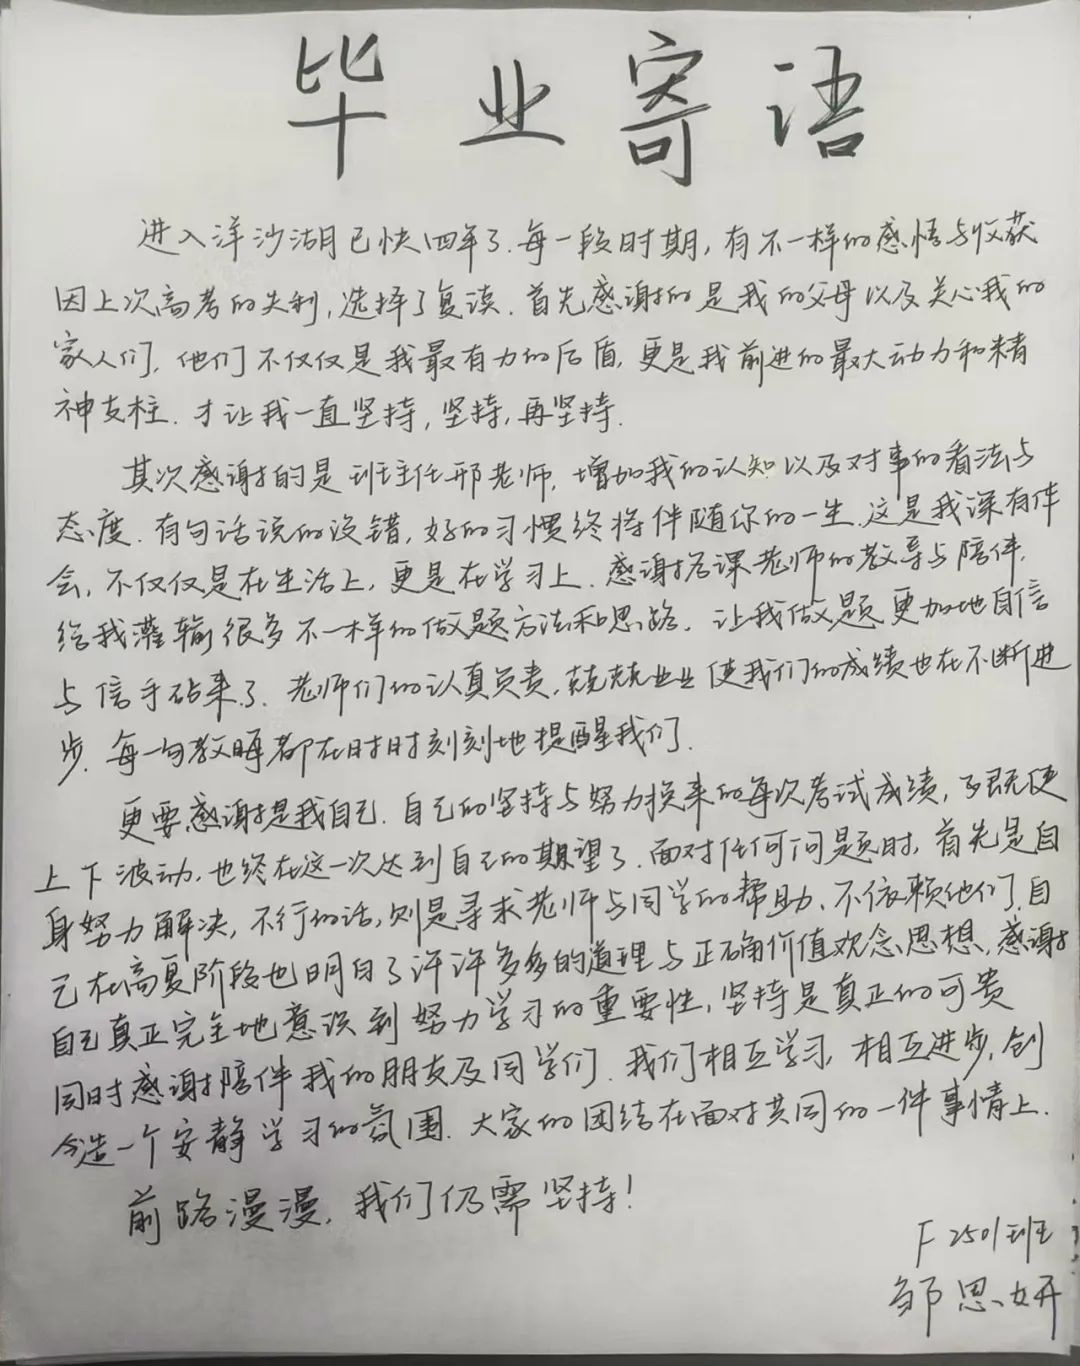 毕业寄语
进入洋沙湖已快四年了.每一段时期,有不一样的感悟与收获
因上次高考的失利,选择了复读.首先感谢的是我的父母以及关心我的
家人们,他们不仅仅是我最有力的后盾,更是我前进的最大动力和精
神支柱.才让我一直坚持,坚持,再坚持.
其次感谢的是班主任邢老师,增加我的认知以及对事的看法与
态度.有句话说的没错,好的习惯终将伴随你的一生.这是我深有体
会,不仅仅是在生活上,更是在学习上.感谢各课老师的教导与陪伴,
给我灌输很多不一样的做题方法和思路.让我做题更加地自信
与信手砧来了.老师们的认真负责,兢兢业业使我们的成绩也在不断进
步.每一句教晦都在时时刻刻地提醒我们.
更要感谢是我自己.自己的坚持与努力换来的每次考试成绩,既使
上下波动,也终在这一次达到自己的期望了.面对任何问题时,首先是自
身努力解决,不行的话,则是寻求老师与同学的帮助、不依赖他们.自
己在高复阶段也明白了许许多多的道理与正确价值观念思想,感谢
自己真正完全地意识到努力学习的重要性,坚持是真正的可贵
同时感谢陪伴我的朋友及同学们.我们相互学习,相互进步,创
造一个安静学习的氛围.大家的团结在面对共同的一件事情上.
前路漫漫,我们仍需坚持!
F2501班
邹思妍